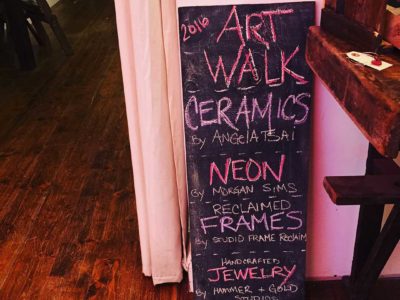 2016 ART
WALK
CERAMICS
By ANGELA TSAI
NEON
By MORGAN SIMS
RECLAIMED
FRAMES
By STUDIO FRAME RECLAIM
HANDCRAFTED
JEWELRY
By HAMMER + GOLD
STUDIOS